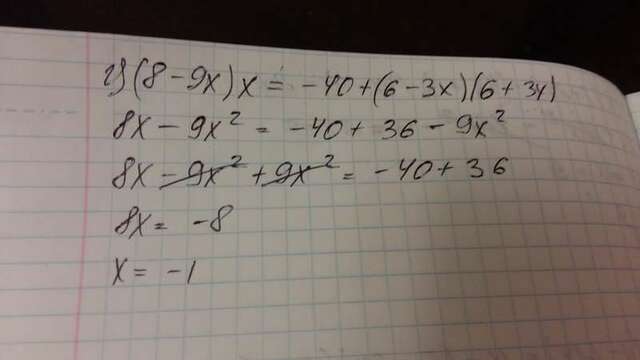 2) (8-9x)x = -40+(6-3x)(6+3x)
8x - 9x² = -40+36-9x²
8x - 9x² + 9x² = -40+36
8x = -8
x = -1